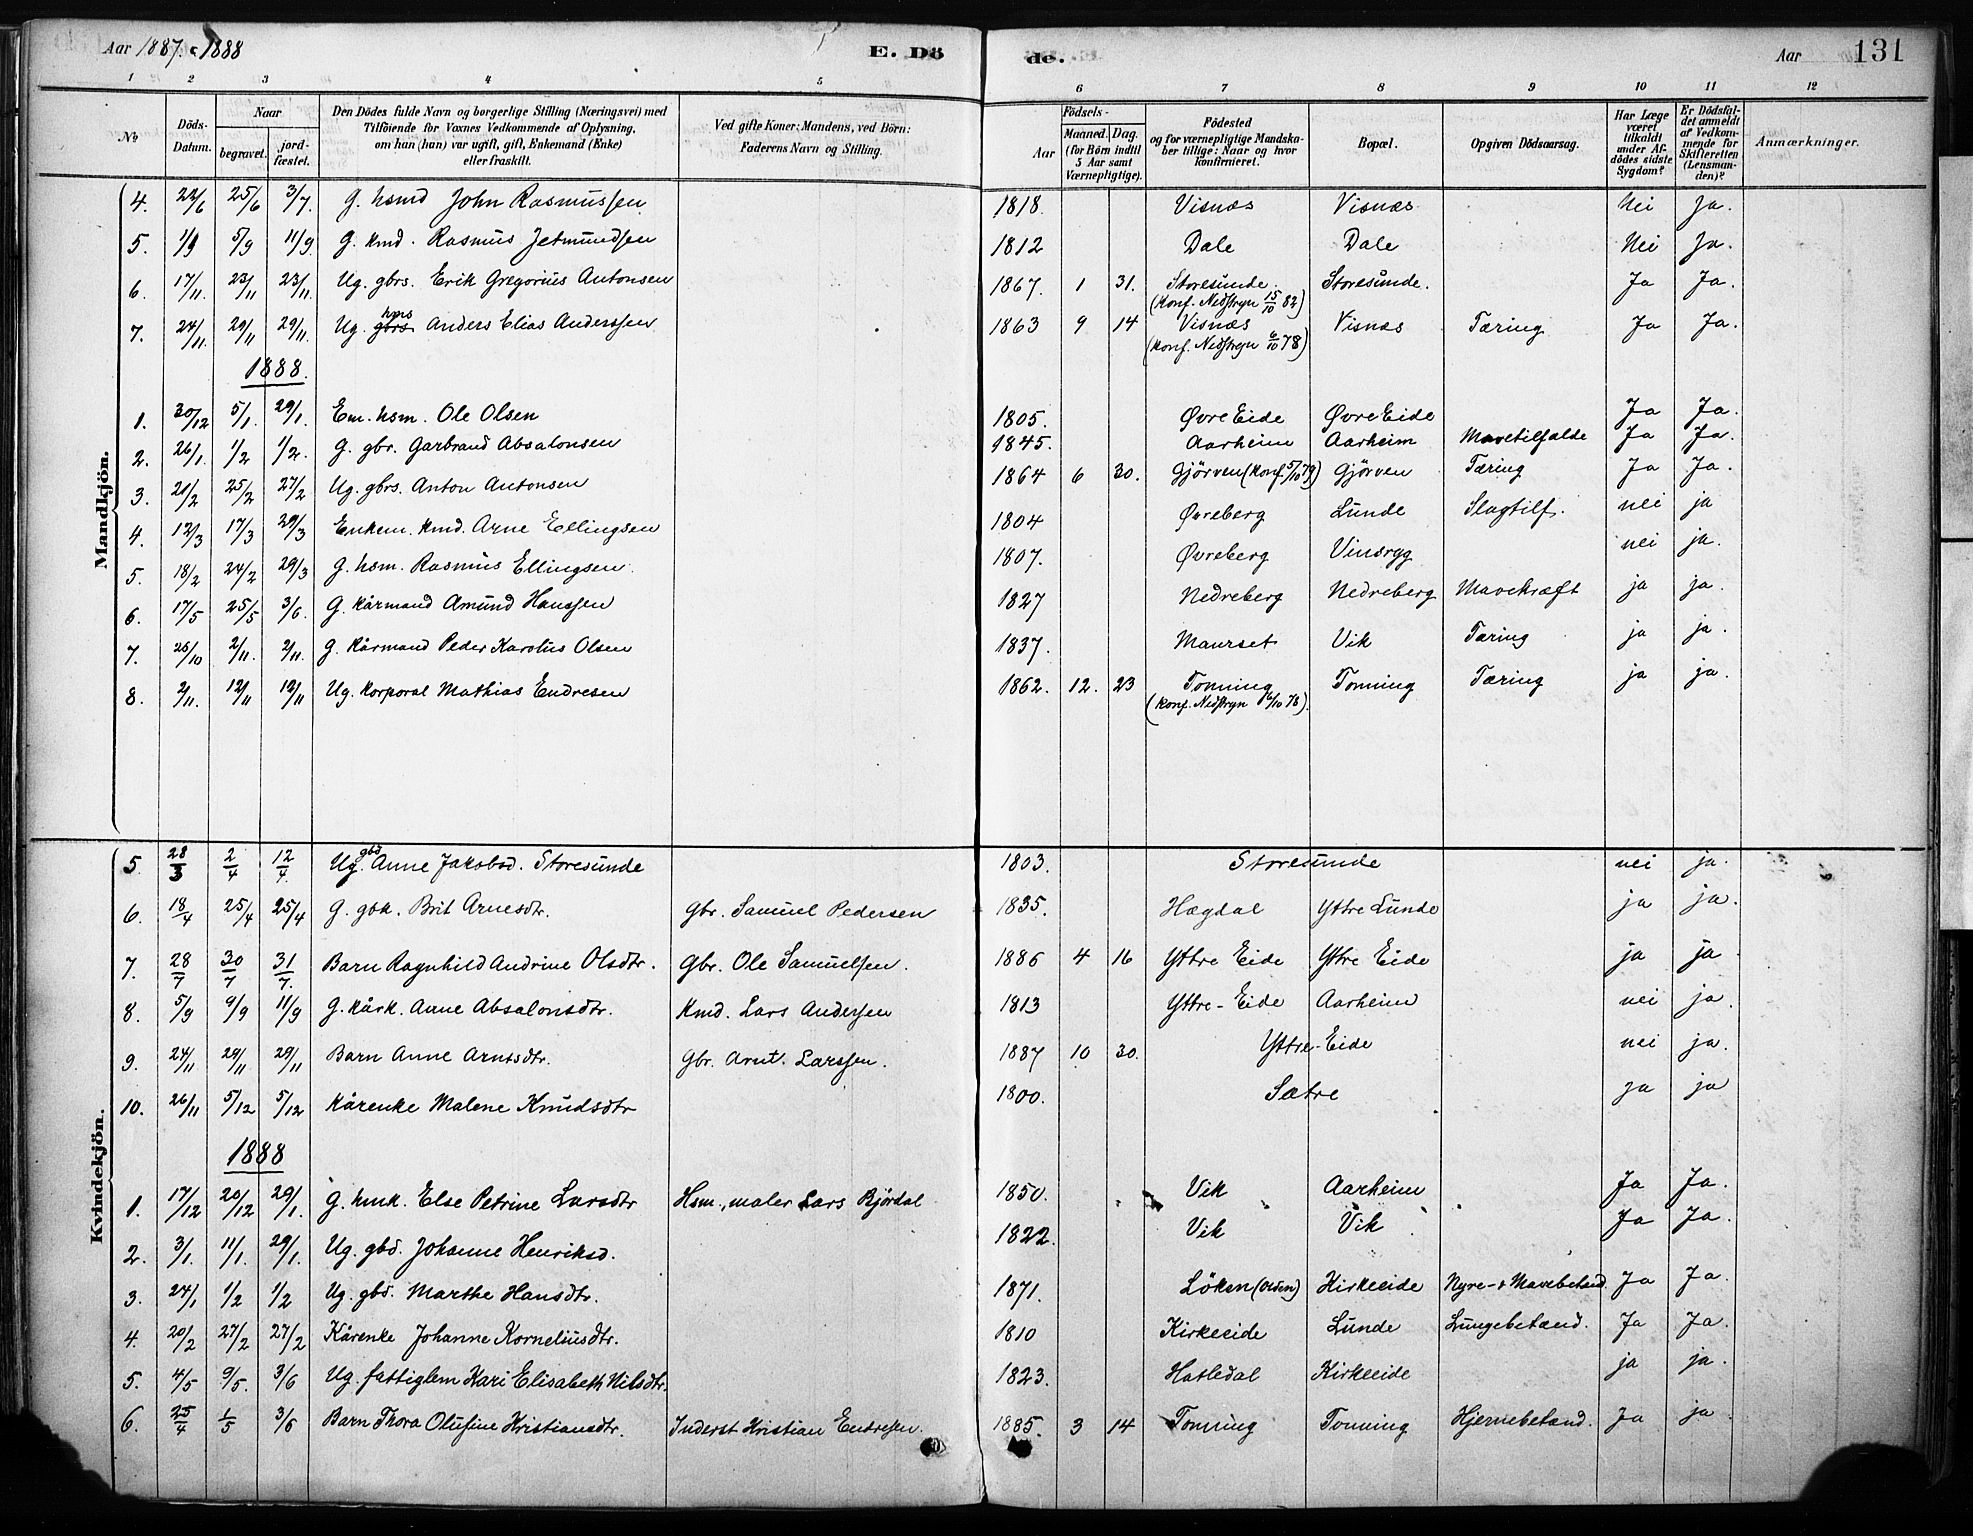 Aar 1887. & 1888 E. Döde. Aar 131
1 2 3 4 5 6 7 8 9 10 11 12
No Döds-Datum. Naar begravet. jord-fæstet. Den Dödes fulde Navn og borgerlige Stilling (Næringsvei) med Tilföiende for Voxnes Vedkommende af Oplysning, om han (hun) var ugift, gift, Enkemand (Enke) eller fraskilt. Ved gifte Koner: Mandens, ved Börn: Faderens Navn og Stilling. Aar Födsels- Maaned. Dag. (for Börn indtil 5 Aar samt Værnepligtige). Födested og for værnepligtige Mandska-ber tillige: Naar og hvor konfirmeret. Bopæl. Opgiven Dödsaarsag. Har Læge været tilkaldt under Af-dödes sidste Sygdom? Er Dödsfal-det anmeldt af Vedkom-mende for Skifteretten (Lensman-den)? Anmærkninger.
Mandkjön.
4. 22/6 25/6 3/7. G. hsmd John Rasmussen 1818. Visnæs Visnæs Nei Ja.
5. 1/9 5/9 11/9. G. kmd. Rasmus Jetmundsen 1812 Dale Dale Nei Ja.
6. 17/11. 23/11 23/11. Ug. gbrs. Erik Gregorius Antonsen 1867. 1 31. Storesunde. (konf. Nedstryn 15/10 82) Storesunde. Ja Ja.
7. 24/11. 29/11 29/11. Ug. gbrs hms Anders Elias Anderssen 1863 9 14 Visnæs (konf. Nedstryn 6/10 78) Visnæs Tæring Ja Ja.
1888.
1. 30/12 5/1. 29/1. Em. hsm. Ole Olsen 1805. Øvre Eide Øvre Eide Ja Ja.
2. 26/1. 1/2 1/2. G. gbr. Garbrand Absalonsen 1845. Aarheim Aarheim Mavetilfælde Ja Ja.
3. 21/2 25/2 27/2 Ug. gbrs. Anton Antonsen 1864 6 30. Gjörven (konf. 5/10 79) Gjörven Tæring Ja Ja.
4. 12/3 17/3 29/3 Enkem. kmd. Arne Ellingsen 1804 Øvreberg Lunde Slagtilf. nei ja
5. 18/2 24/2 29/3 G. hsm. Rasmus Ellingsen. 1807. Øvreberg Vinsrygg nei ja.
6. 17/5 25/5 3/6. G. kårmand Amund Hanssen 1827 Nedreberg Nedreberg Mavekræft ja ja.
7. 25/10 2/11. 2/11. G. kårmand Peder Karolus Olsen 1837. Maurset Vik Tæring ja ja.
8. 2/11. 12/11 12/11 Ug. korporal Mathias Endresen 1862. 12. 23 Tonning (konf. Nedstryn 6/10 78). Tonning Tæring ja ja.
Kvindekjön.
5. 28/3 2/4 12/4. Ug. gbd Anne Jakobsd. Storesunde 1803. Storesunde nei ja.
6. 18/4 25/4 25/4 G. gbk. Brit Arnesdtr. Gbr. Samuel Pedersen 1835. Hægdal Yttre Lunde ja ja.
7. 28/7 30/7 31/7. Barn Ragnhild Andrine Olsdtr. Gbr. Ole Samuelsen. 1886 4 16 Yttre Eide Yttre Eide ja ja
8. 5/9 9/9 11/9 G. kårk. Anne Absalonsdtr. Kmd. Lars Andersen 1813 Yttre-Eide Aarheim nei ja.
9. 24/11 29/11 29/11 Barn Anne Arntsdtr. Gbr. Arnt. Larssen. 1887 10 30. Yttre-Eide nei ja.
10. 26/11 5/12 5/12 Kårenke Malene Knudsdtr 1800. Sætre ja ja
1888
1. 17/12 20/12 29/1. G. hmk. Else Petrine Larsdtr Hsm., maler Lars Björdal 1850. Vik Aarheim Ja Ja.
2. 3/1. 11/1. 29/1. Ug. gbd. Johanne Henriksd. 1822. Vik Vik Ja Ja.
3. 24/1 1/2 1/2 Ug. gbd. Marthe Hansdtr. 1871. Löken (Olden) Kirkeeide Nyre- & Mavebetænd. Ja Ja.
4. 20/2 27/2 27/2 Kårenke Johanne Korneliusdtr. 1810 Kirkeeide Lunde Lungebetænd. Ja Ja.
5. 4/5 9/5. 3/6 Ug. fattiglem Kari Elisabeth Nilsdtr. 1823. Hatledal Kirkeeide ja ja.
6. 25/4 1/5 3/6 Barn Thora Olusine Kristiansdtr. Inderst Kristian Endresen. 1885. 3 14 Tonning Tonning Hjernebetænd. Ja ja